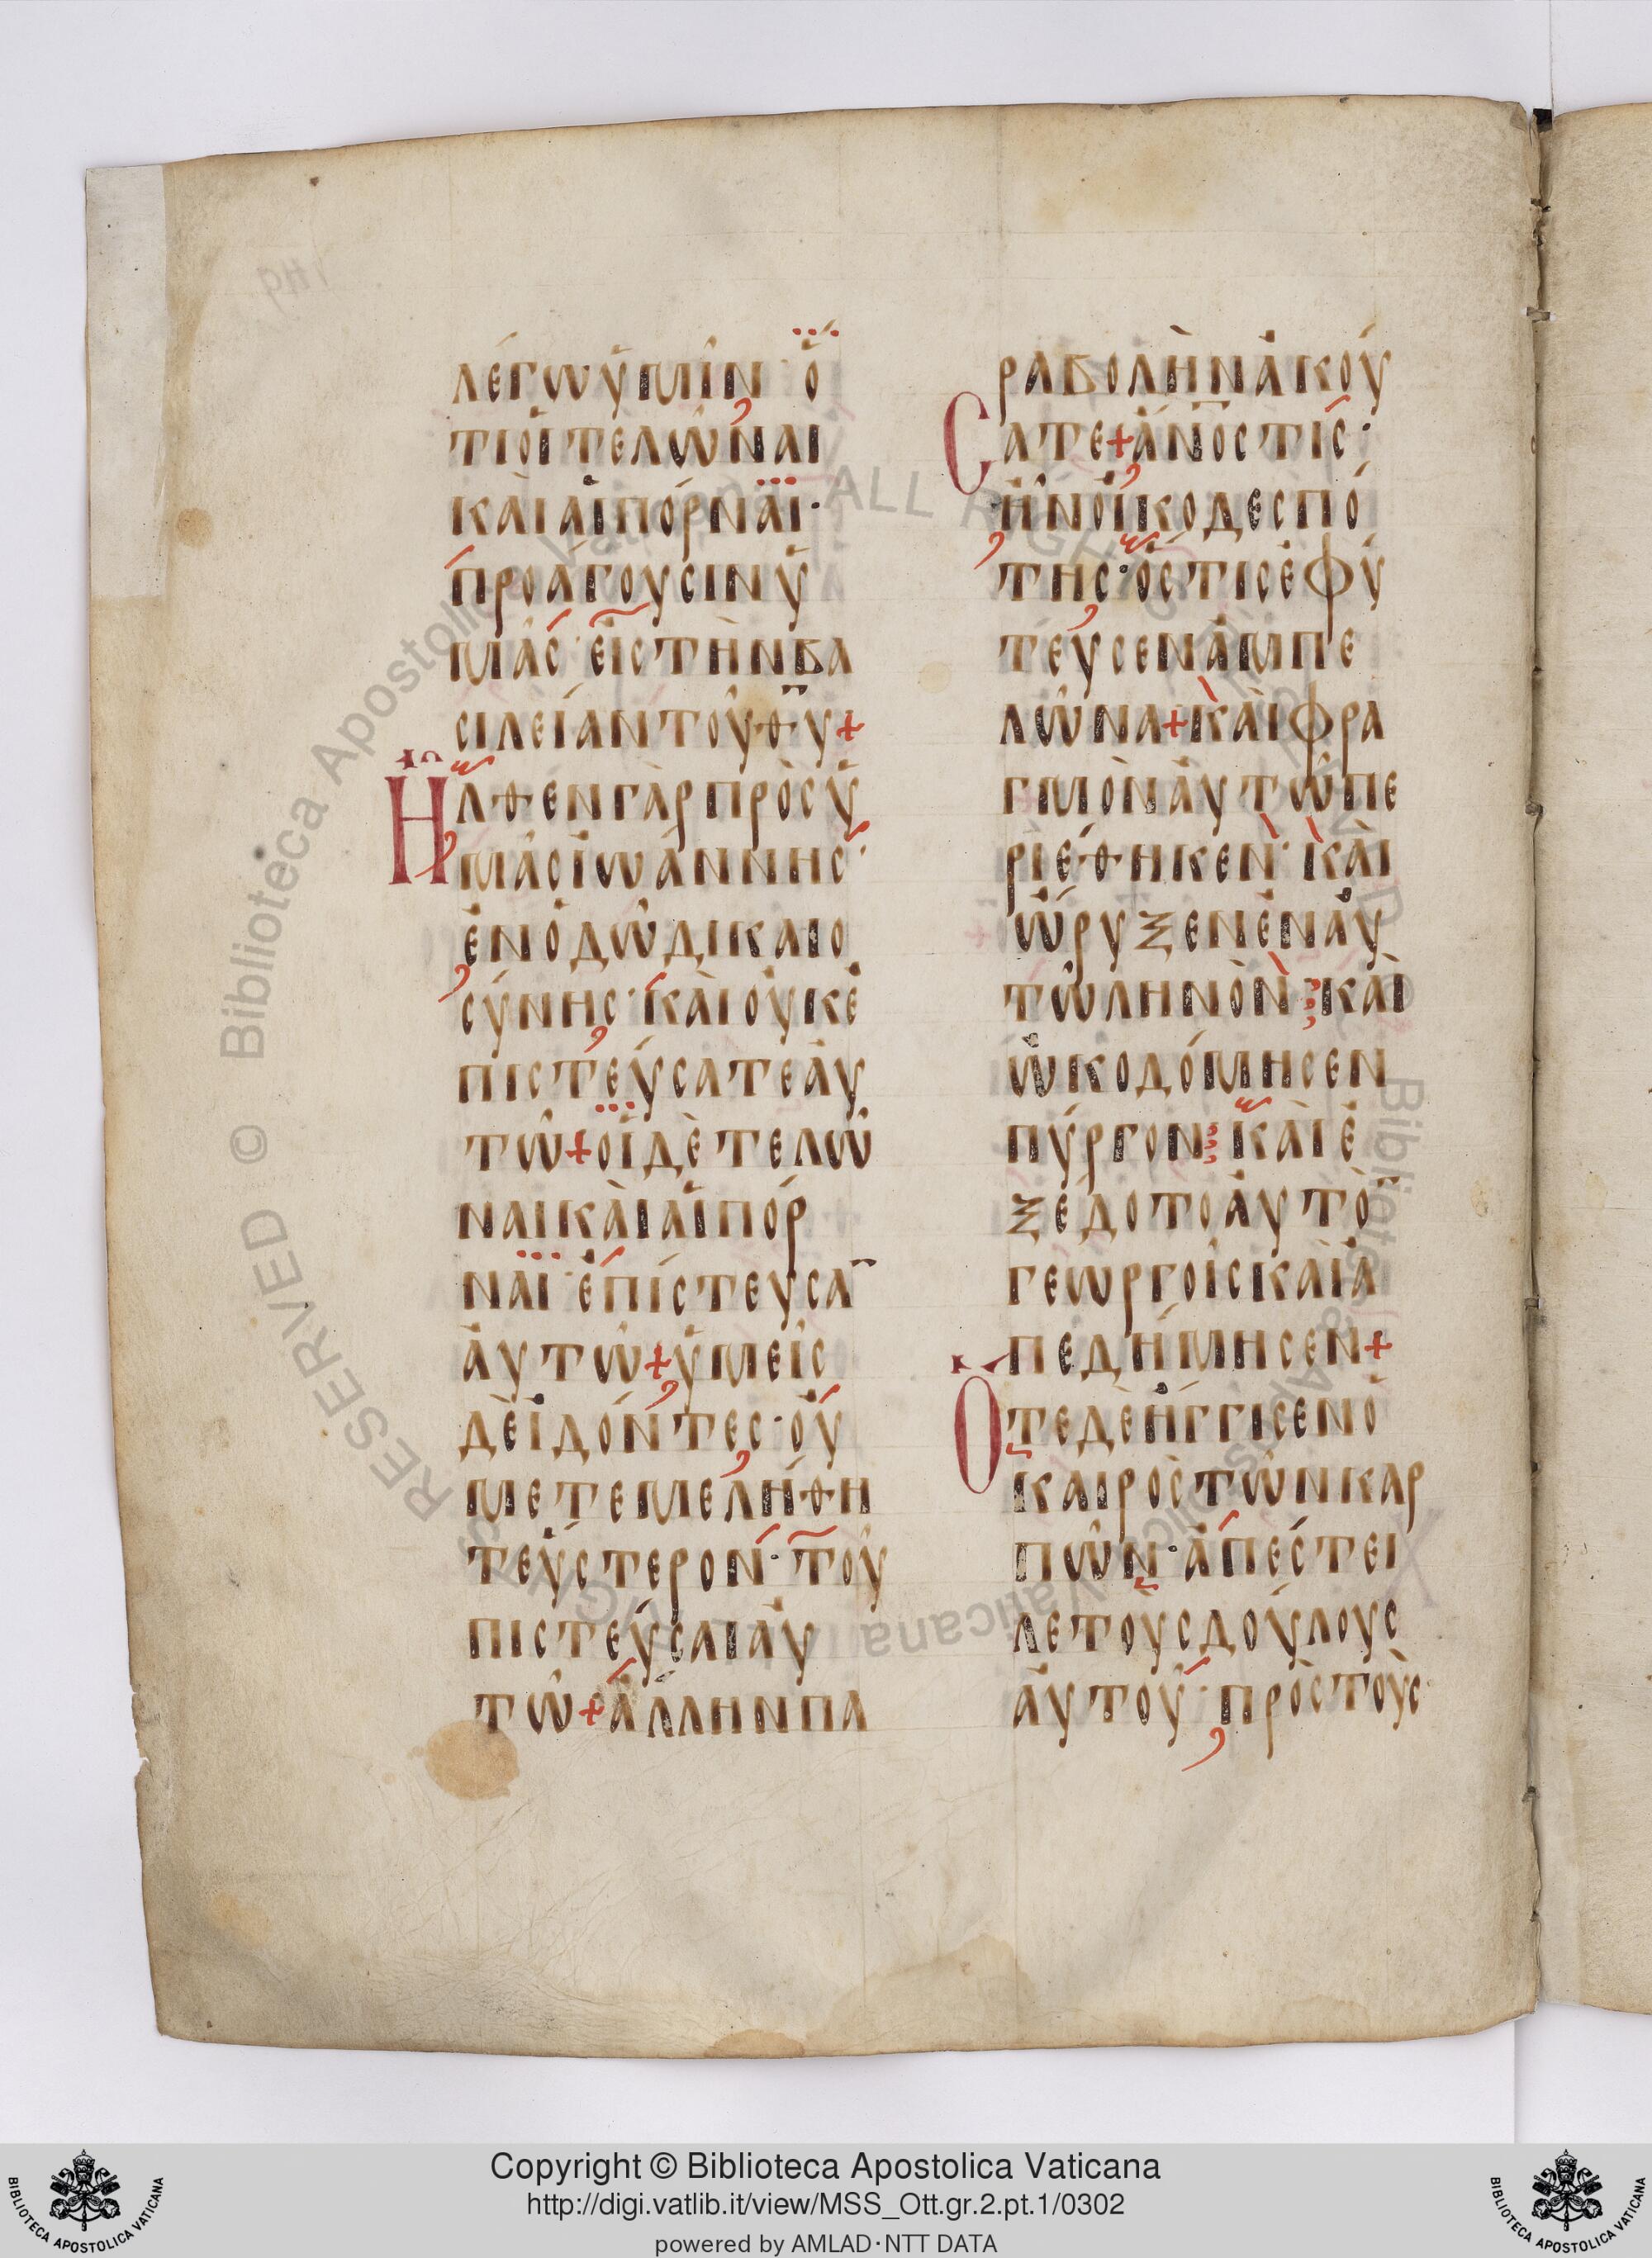 λέγω ὑμῖν ὅ
τι οἱ τελῶναι
καὶ αἱ πόρναι·
προάγουσιν ὑ
μᾶς· εἰς τὴν βα
σιλείαν τοῦ θ̅υ̅+
Ἦλθεν γὰρ πρὸς ὑ
μᾶς ἰωάννης·
ἐν ὁδῶ δικαιο
σύνης· καὶ οὐκ ἐ
πιστεύσατε αὐ
τῶ+ οἱ δὲ τελῶ
ναι καὶ αἱ πόρ
ναι· ἐπίστευσα̅
αὐτῶ+ ὑμεῖς
δὲ ἰδόντες· οὐ
μετεμελήθη
τε ὕστερον· τοῦ
πιστεῦσαι αὐ
τῶ+ ἄλλην πα
ραβολὴν ἀκού
Σατε+ ἄ̅ν̅ο̅ς τίς·
ἦν οἰκοδεσπό
της· ὅστις ἐφύ
τευσεν ἀμπε
λῶνα+ καὶ φρα
γμὸν αὐτῶ πε
ριέθηκεν· καὶ
ὤρυξεν ἐν αὐ
τῶ ληνὸν καὶ
ὠκοδόμησεν
πύργον καὶ ἐ
ξέδοτο αὐτὸ̅
γεωργοῖς καὶ ἀ
πεδήμησεν+
Ὅτε δὲ ἤγγισεν ὁ
καιρὸς τῶν καρ
πῶν· ἀπέστει
λε τοὺς δούλους
αὐτοῦ· πρὸς τοὺς
Copyright © Biblioteca Apostolica Vaticana
http://digi.vatlib.it/view/MSS_Ott.gr.2.pt.1/0302
powered by AMLAD·NTT DATA
BIBLIOTECA APOSTOLICA VATICANA
BIBLIOTECA APOSTOLICA VATICANA